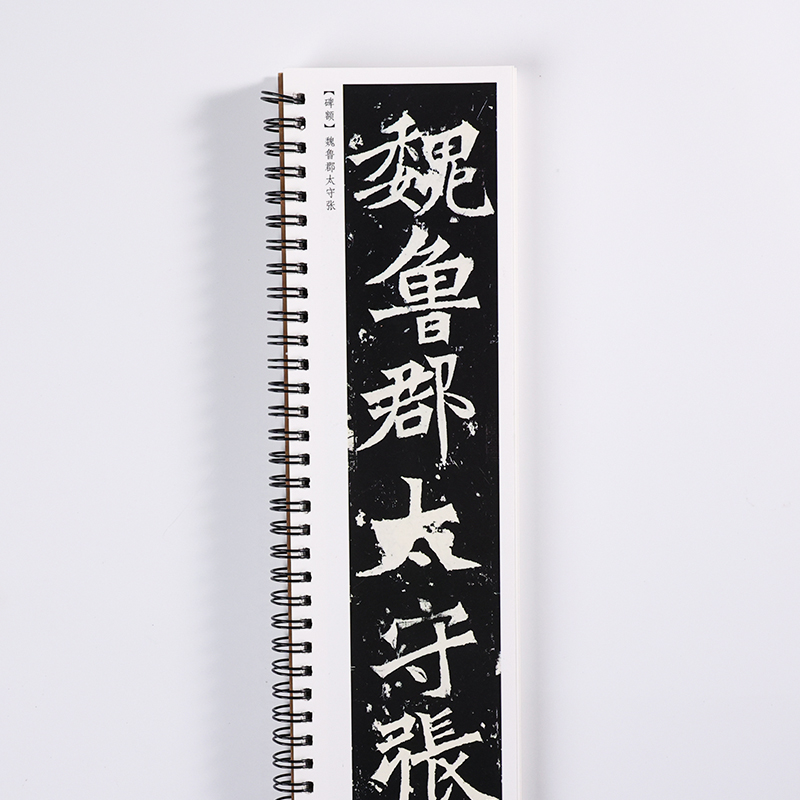 【碑额】魏鲁郡太守张
魏魯郡太守張